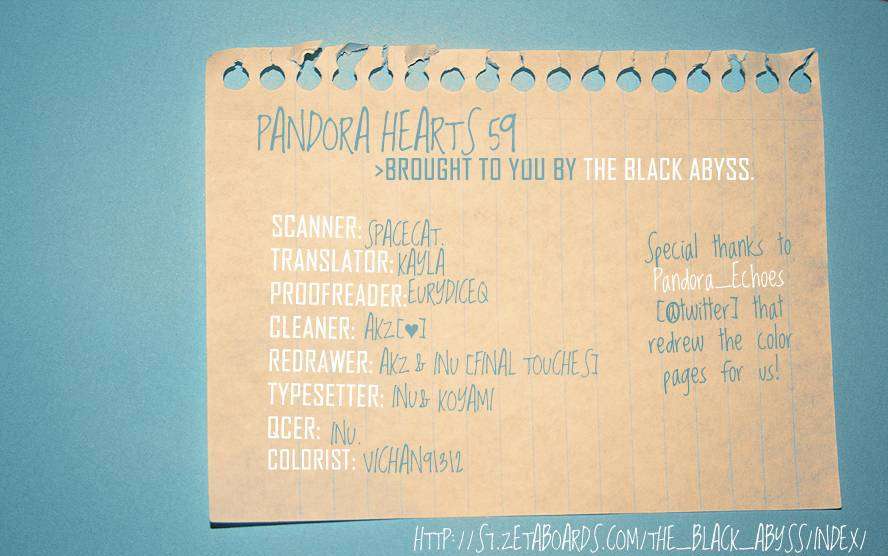 PANDORA HEARTS 59
>BROUGHT TO YOU BY THE BLACK ABYSS.
SCANNER: SPACECAT.
TRANSLATOR: KAYLA
PROOFREADER: EURYDICEQ
CLEANER: AKZ[♥]
REDRAWER: AKZ & INU [FINAL TOUCHES]
TYPESETTER: INU & KOYAMI
QCER: INU.
COLORIST: VICHAN91312
Special thanks to
Pandora_Echoes
[@twitter] that
redrew the color
pages for us!
HTTP://S7.ZETABOARDS.COM/THE_BLACK_ABYSS/INDEX/